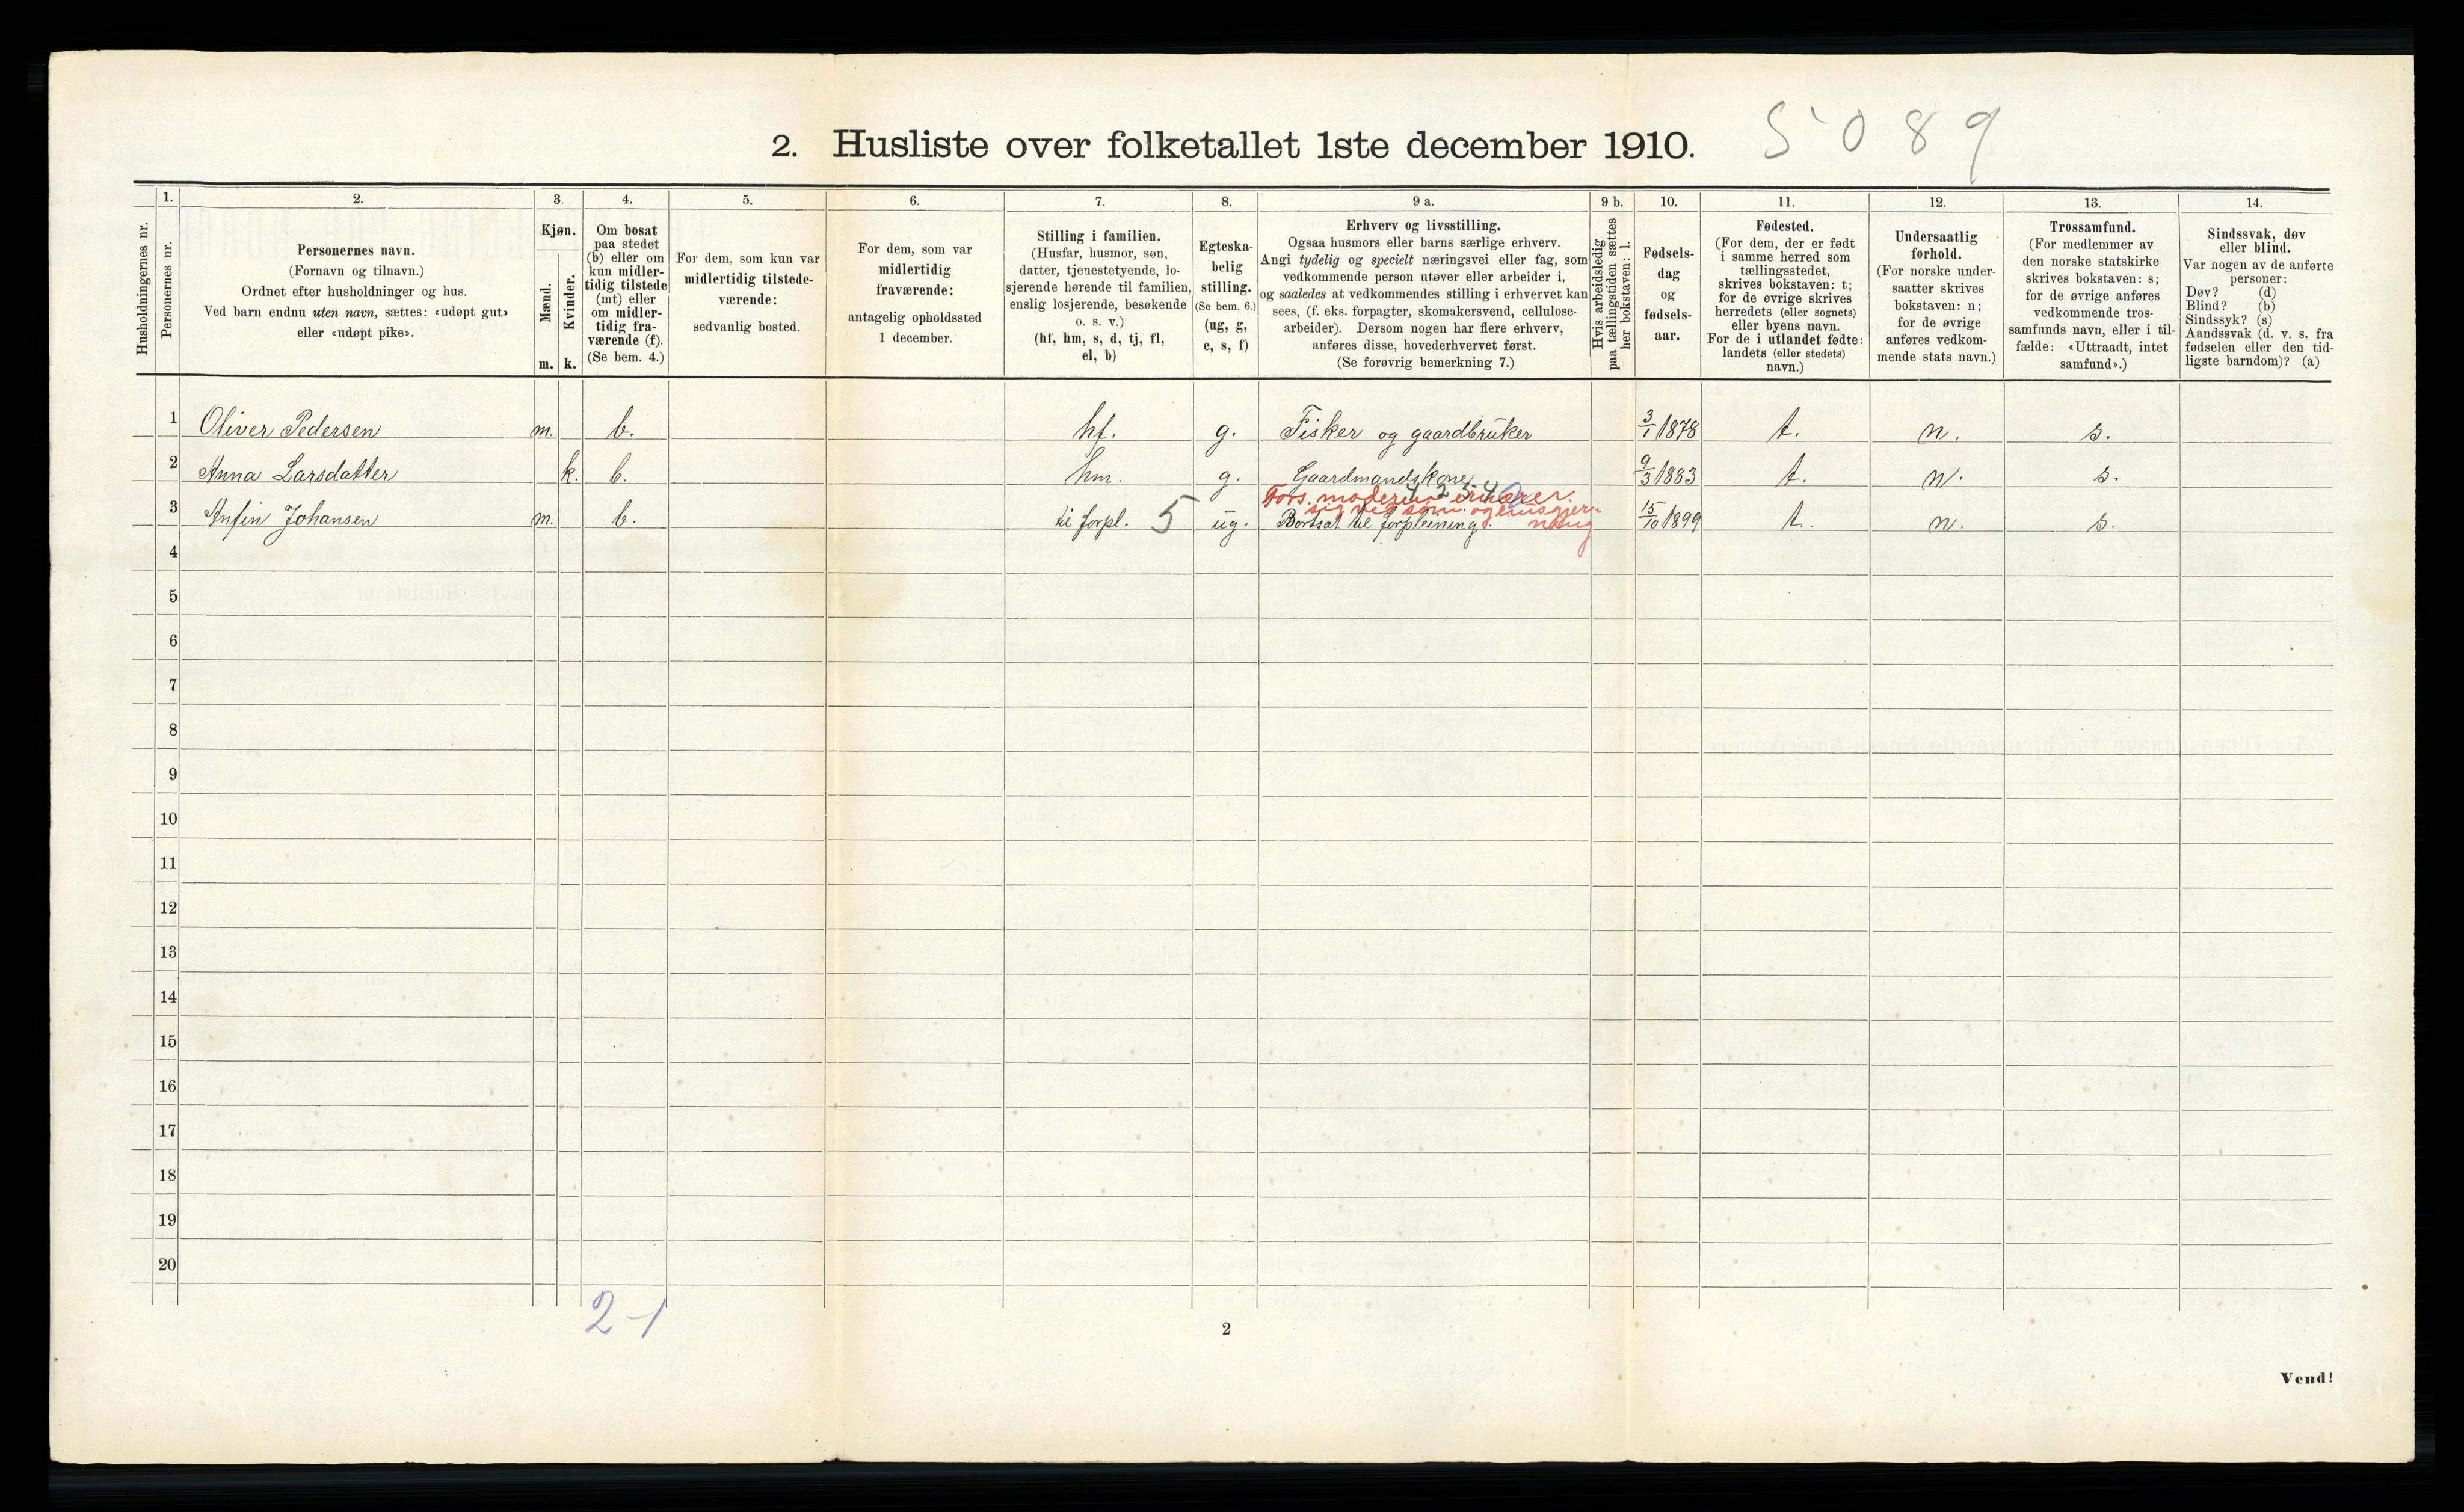 2. Husliste over folketallet 1ste december 1910. 5089
Husholdningernes nr.
1.
Personernes nr.
2.
Personernes navn.
(Fornavn og tilnavn.)
Ordnet efter husholdninger og hus.
Ved barn endnu uten navn, sættes: «udøpt gut»
eller «udøpt pike».
3.
Kjøn.
Mænd.
Kvinder.
m. k.
4.
Om bosat
paa stedet
(b) eller om
kun midler-
tidig tilstede
(mt) eller
om midler-
tidig fra-
værende (f).
(Se bem. 4.)
5.
For dem, som kun var
midlertidig tilstede-
værende:
sedvanlig bosted.
6.
For dem, som var
midlertidig
fraværende:
antagelig opholdssted
1 december.
7.
Stilling i familien.
(Husfar, husmor, søn,
datter, tjenestetyende, lo-
sjerende hørende til familien,
enslig losjerende, besøkende
o. s. v.)
(hf, hm, s, d, tj, fl,
el, b)
8.
Egteska-
belig
stilling.
(Se bem. 6.)
(ug, g,
e, s, f)
9 a.
Erhverv og livsstilling.
Ogsaa husmors eller barns særlige erhverv.
Angi tydelig og specielt næringsvei eller fag, som
vedkommende person utøver eller arbeider i,
og saaledes at vedkommendes stilling i erhvervet kan
sees, (f. eks. forpagter, skomakersvend, cellulose-
arbeider). Dersom nogen har flere erhverv,
anføres disse, hovederhvervet først.
(Se forøvrig bemerkning 7.)
9 b.
Hvis arbeidsledig
paa tællingstiden sættes
her bokstaven: l.
10.
Fødsels-
dag
og
fødsels-
aar.
11.
Fødested.
(For dem, der er født
i samme herred som
tællingsstedet,
skrives bokstaven: t;
for de øvrige skrives
herredets (eller sognets)
eller byens navn.
For de i utlandet fødte:
landets (eller stedets)
navn.)
12.
Undersaatlig
forhold.
(For norske under-
saatter skrives
bokstaven: n;
for de øvrige
anføres vedkom-
mende stats navn.)
13.
Trossamfund.
(For medlemmer av
den norske statskirke
skrives bokstaven: s;
for de øvrige anføres
vedkommende tros-
samfunds navn, eller i til-
fælde: «Uttraadt, intet
samfund».)
14.
Sindssvak, døv
eller blind.
Var nogen av de anførte
personer:
Døv? (d)
Blind? (b)
Sindssyk? (s)
Aandssvak (d. v. s. fra
fødselen eller den tid-
ligste barndom)? (a)
1 Oliver Pedersen m. b. hf. g. Fisker og gaardbruker 3/1 1878 t. n. s.
2 Anna Larsdatter k. b. hm. g. Gaardmandskone 9/3 1883 t. n. s.
Fors. moderen ernærer
sig ved som
3 Anfin Johansen m. b. til forpl. 5 ug. Bortsat til forpleining. 15/10 1899 t. n. s.
4
5
6
7
8
9
10
11
12
13
14
15
16
17
18
19
20
2-1
2
Vend!